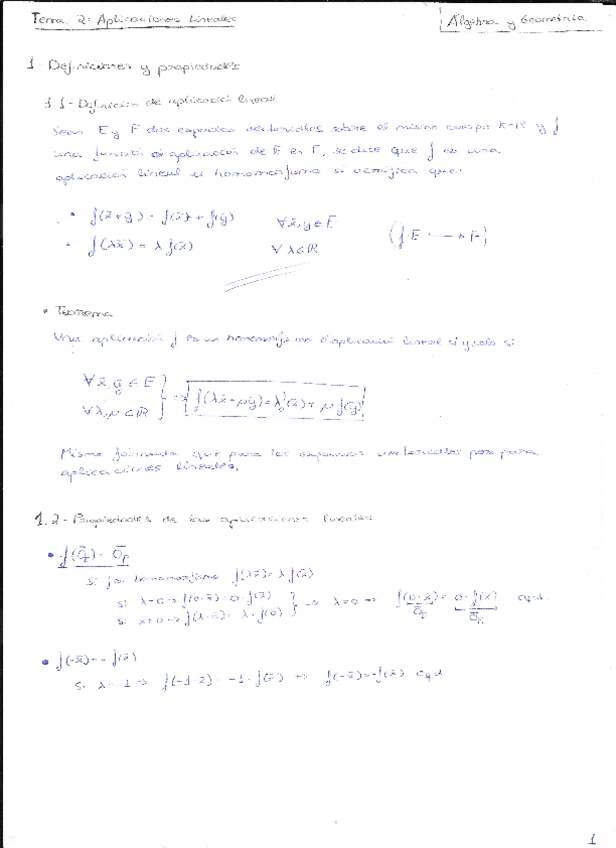 Tema 2: Aplicaciones Lineales
Álgebra y Geometría
1- Definiciones y propiedades
1.1- Definición de aplicació lineal
Sean E y F dos espacios vectoriales sobre el mismo cuerpo K=R y f
una función o aplicación de E en F, se dice que f es una
aplicación lineal u homomorfismo si verifica que:
• f(x̄+ȳ) = f(x̄) + f(ȳ) ∀x̄,ȳ ∈ E (f: E → F)
• f(λx̄) = λ f(x̄) ∀ λ∈R
• Teorema
Una aplicación f es un homomorfismo o aplicació lineal si y solo si:
∀ x̄,ȳ ∈ E
∀ λ,μ ∈ R } => f(λx̄+μȳ)=λf(x̄)+ μ f(ȳ)
Misma fórmula que para los espacios vectoriales pero para
aplicaciones lineales.
1.2- Propiedades de las aplicaciones lineales
• f(0̄_E) = 0̄_F
Si f es homomorfismo f(λx̄)=λ f(x̄)
si λ=0 => f(0·x̄)=0·f(x̄)
si x=0 => f(λ·0)= λ·f(0) } => λ=0 => f(0·x̄) = 0·f(x̄) cqd.
0̄_E 0̄_F
• f(-x̄)=-f(x̄)
Si λ=-1 => f(-1·x̄) = -1·f(x̄) => f(-x̄)=-f(x̄) cqd
1